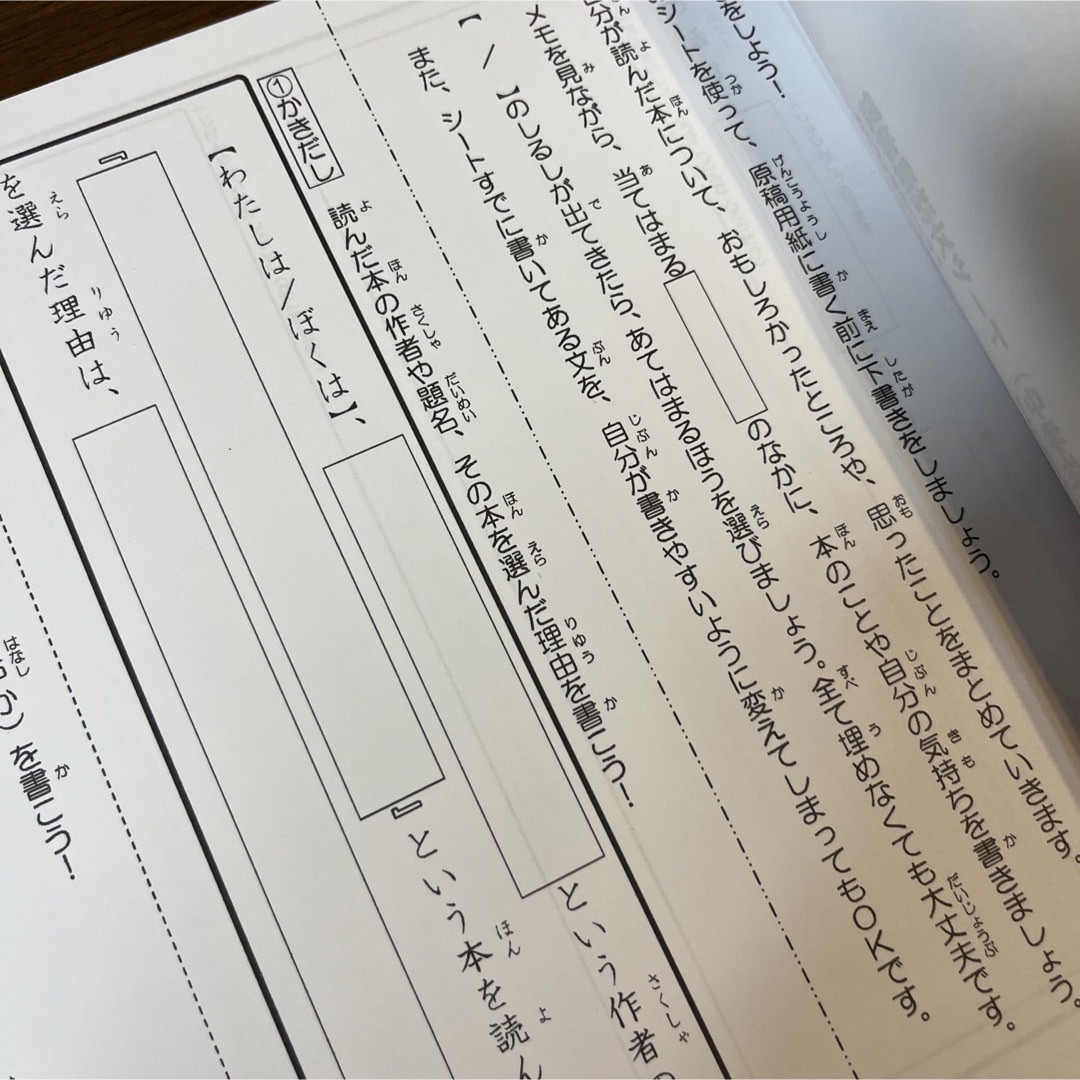 をしよう！
シートを使って、原稿用紙に書く前に下書きをしましょう。
分が読んだ本について、おもしろかったところや、思ったことをまとめていきます。
メモを見ながら、当てはまる　のなかに、本のことや自分の気持ちを書きましょう。
【／】のしるしが出てきたら、あてはまるほうを選びましょう。全て埋めなくても大丈夫です。
また、シートすでに書いてある文を、自分が書きやすいように変えてしまってもＯＫです。
①かきだし
読んだ本の作者や題名、その本を選んだ理由を書こう！
【わたしは／ぼくは】、　という作者の
『　』という本を読ん
を選んだ理由は、
か）を書こう！